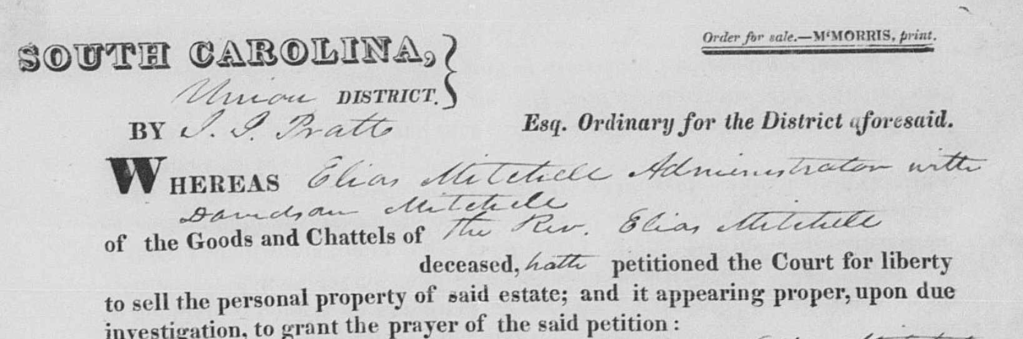 Order for sale.—McMORRIS, print.
SOUTH CAROLINA,
Union DISTRICT.
BY J. J. Pratt Esq. Ordinary for the District aforesaid.
WHEREAS Elias Mitchell Administrator with
Davidson Mitchell
of the Goods and Chattels of The Rev. Elias Mitchell
deceased, hath petitioned the Court for liberty
to sell the personal property of said estate; and it appearing proper, upon due
investigation, to grant the prayer of the said petition: